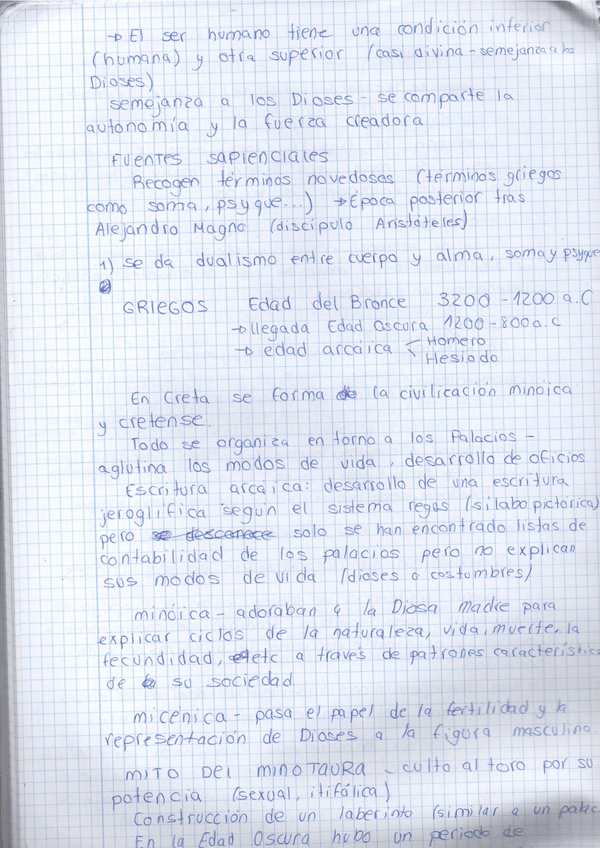 → El ser humano tiene una condición inferior
(humana) y otra superior (casi divina - semejanza a los
Dioses)
semejanza a los Dioses - se comparte la
autonomía y la fuerza creadora
FUENTES SAPIENCIALES
Recogen términos novedosos (términos griegos
como soma, psyque...) → Época posterior tras
Alejandro Magno (discípulo Aristóteles)
1) se da dualismo entre cuerpo y alma, soma y psyque
GRIEGOS Edad del Bronce 3200 - 1200 a.C
→ llegada Edad Oscura 1200 - 800 a.C
→ edad arcáica < Homero
Hesiodo
En Creta se forma la civilicación minóica
y cretense.
Todo se organiza en torno a los Palacios -
aglutina los modos de vida, desarrollo de oficios
Escritura arcáica: desarrollo de una escritura
jeroglífica según el sistema regus (sílabo pictórica)
pero se descenece solo se han encontrado listas de
contabilidad de los palacios pero no explican
sus modos de vida (dioses o costumbres)
minóica - adoraban a la Diosa Madre para
explicar ciclos de la naturaleza, vida, muerte, la
fecundidad, etc a través de patrones característic
de su sociedad.
micénica - pasa el papel de la fertilidad y la
representación de Dioses a la figura masculina.
MITO DEL MINOTAURA - culto al toro por su
potencia (sexual, itifálica)
Construcción de un laberinto (similar a un palac
En la Edad Oscura hubo un periodo de